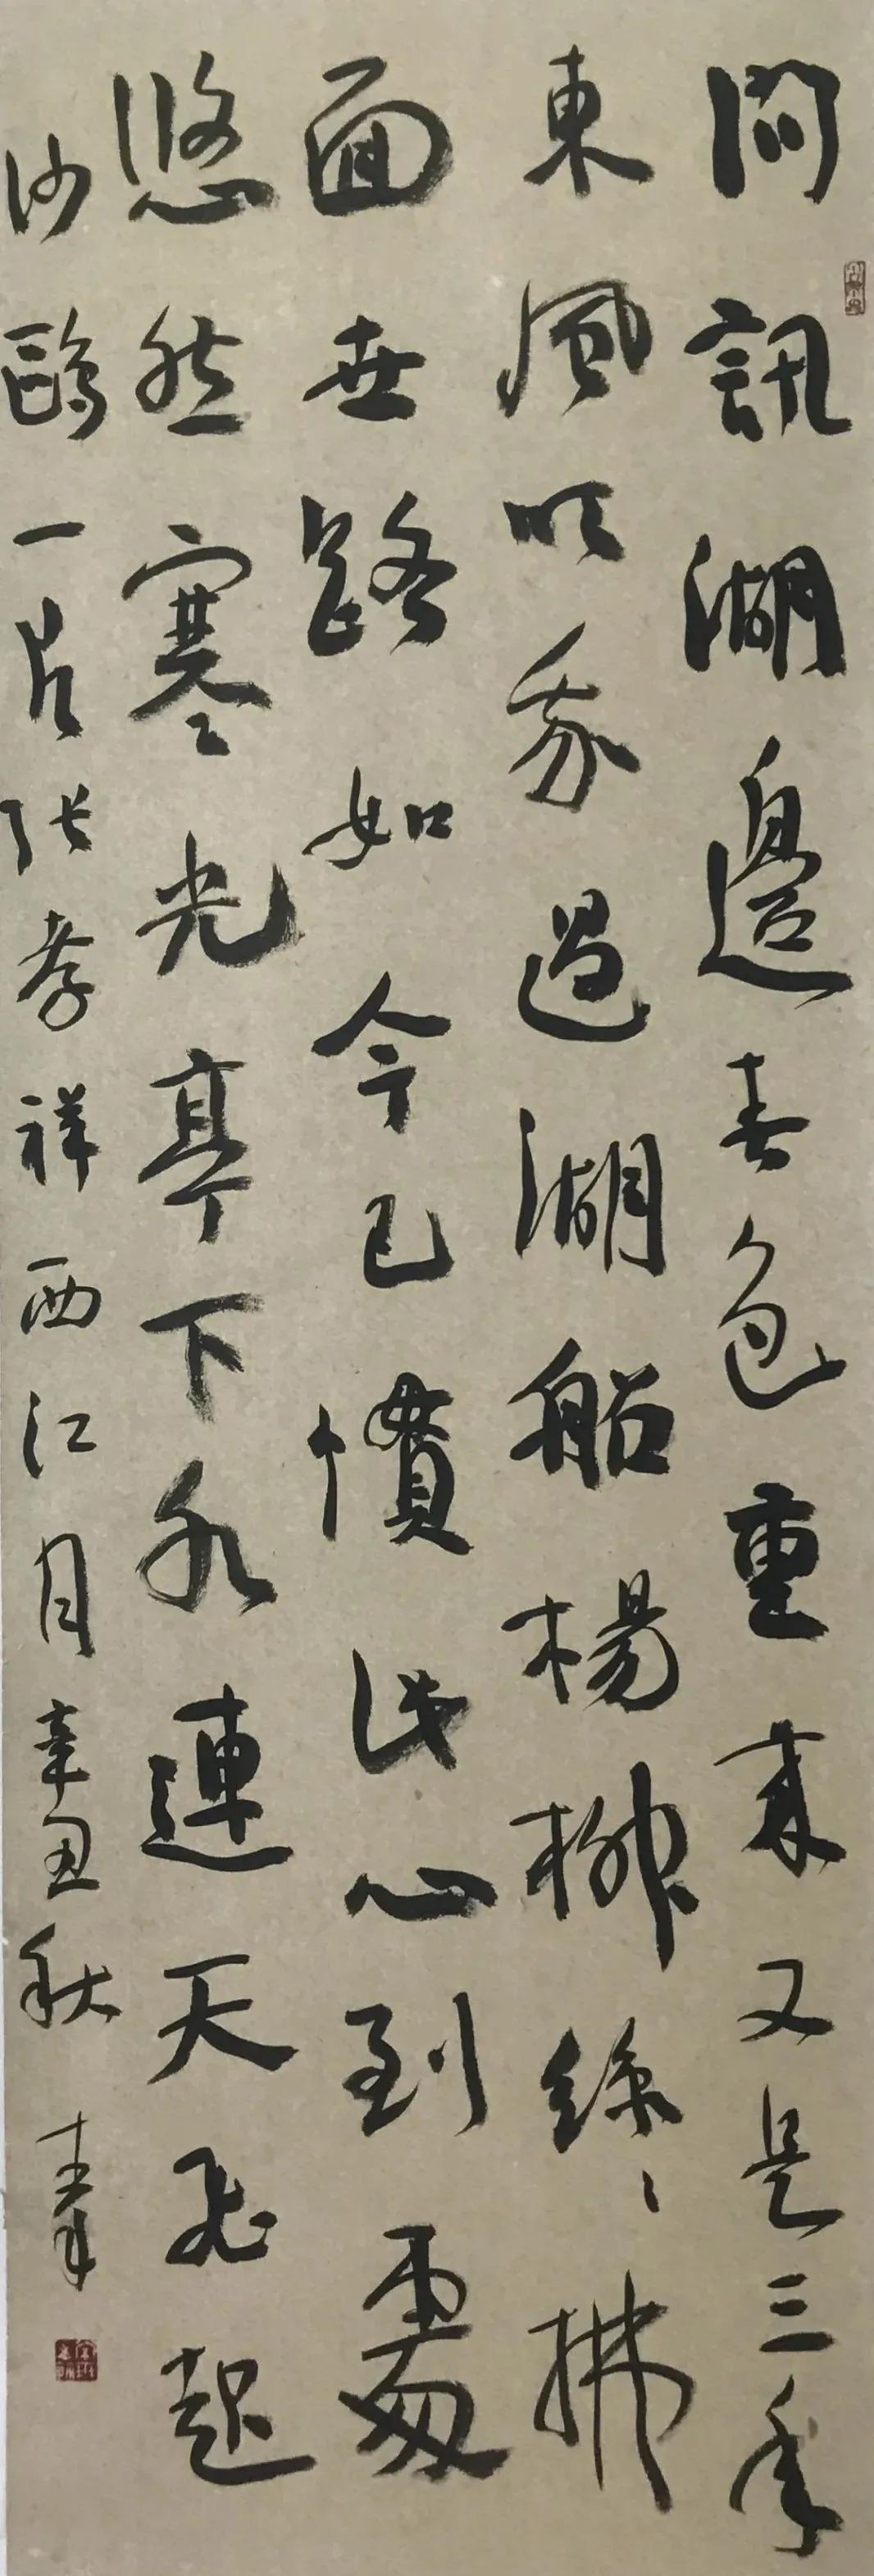 問訊湖邊春色重来又是三年
東風吹我過湖船楊柳絲々拂
面世路如今已慣此心到處
悠然寒光亭下水連天飛起
沙鷗一片張孝祥西江月辛丑秋